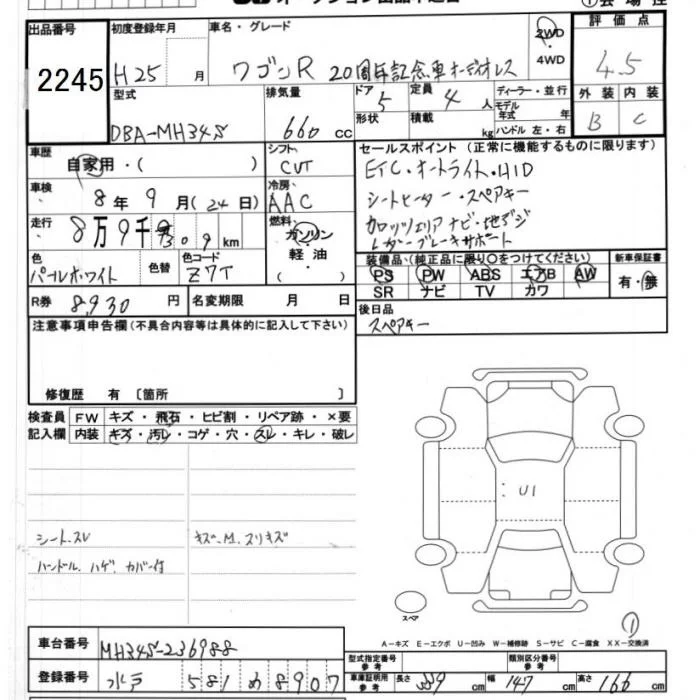 出品番号 初度登録年月 車名・グレード 評価点
2245 H25 月 ワゴンR 20周年記念車 オーディオレス 2WD ・ 4WD 4.5
型式 排気量 ドア 5 定員 4 人 ディーラー・並行 外装 内装
DBA-MH34S 660 cc 形状 積載 kg モデル年式 年 ハンドル 左・右 B C
車歴 シフト セールスポイント (正常に機能するものに限ります)
自家用・( ) CVT ETC・オートライト・HID
車検 冷房 シートヒーター・スペアキー
8年9月(24日) AAC カロッツェリア ナビ・地デジ
走行 燃料 レーダーブレーキサポート
8万9千 309km ガソリン
色 色替 色コード 軽油
パールホワイト Z7T ( )
装備品(純正品に限り○をつけてください) 新車保証書
PS PW ABS エアB AW 有・無
SR ナビ TV カワ
R券 8,930 円 名変期限 月 日 後日品
スペアキー
注意事項申告欄(不具合内容等は具体的に記入して下さい)
修復歴 有 〔箇所 〕
検査員 FW キズ・飛石・ヒビ割・リペア跡・×要
記入欄 内装 キズ・汚レ・コゲ・穴・スレ・キレ・破レ
U1
シート.スレ キズ.M.スリキズ
ハンドル.ハゲ.カバー付
スペア
①
A-キズ E-エクボ U-凹み W-補修跡 S-サビ C-腐食 XX-交換済
車台番号 MH34S-236988
型式指定番号 参考 類別区分番号 参考
登録番号 水戸 581 め 8907
車庫証明用 参考 長さ 339 cm 幅 147 cm 高さ 166 cm